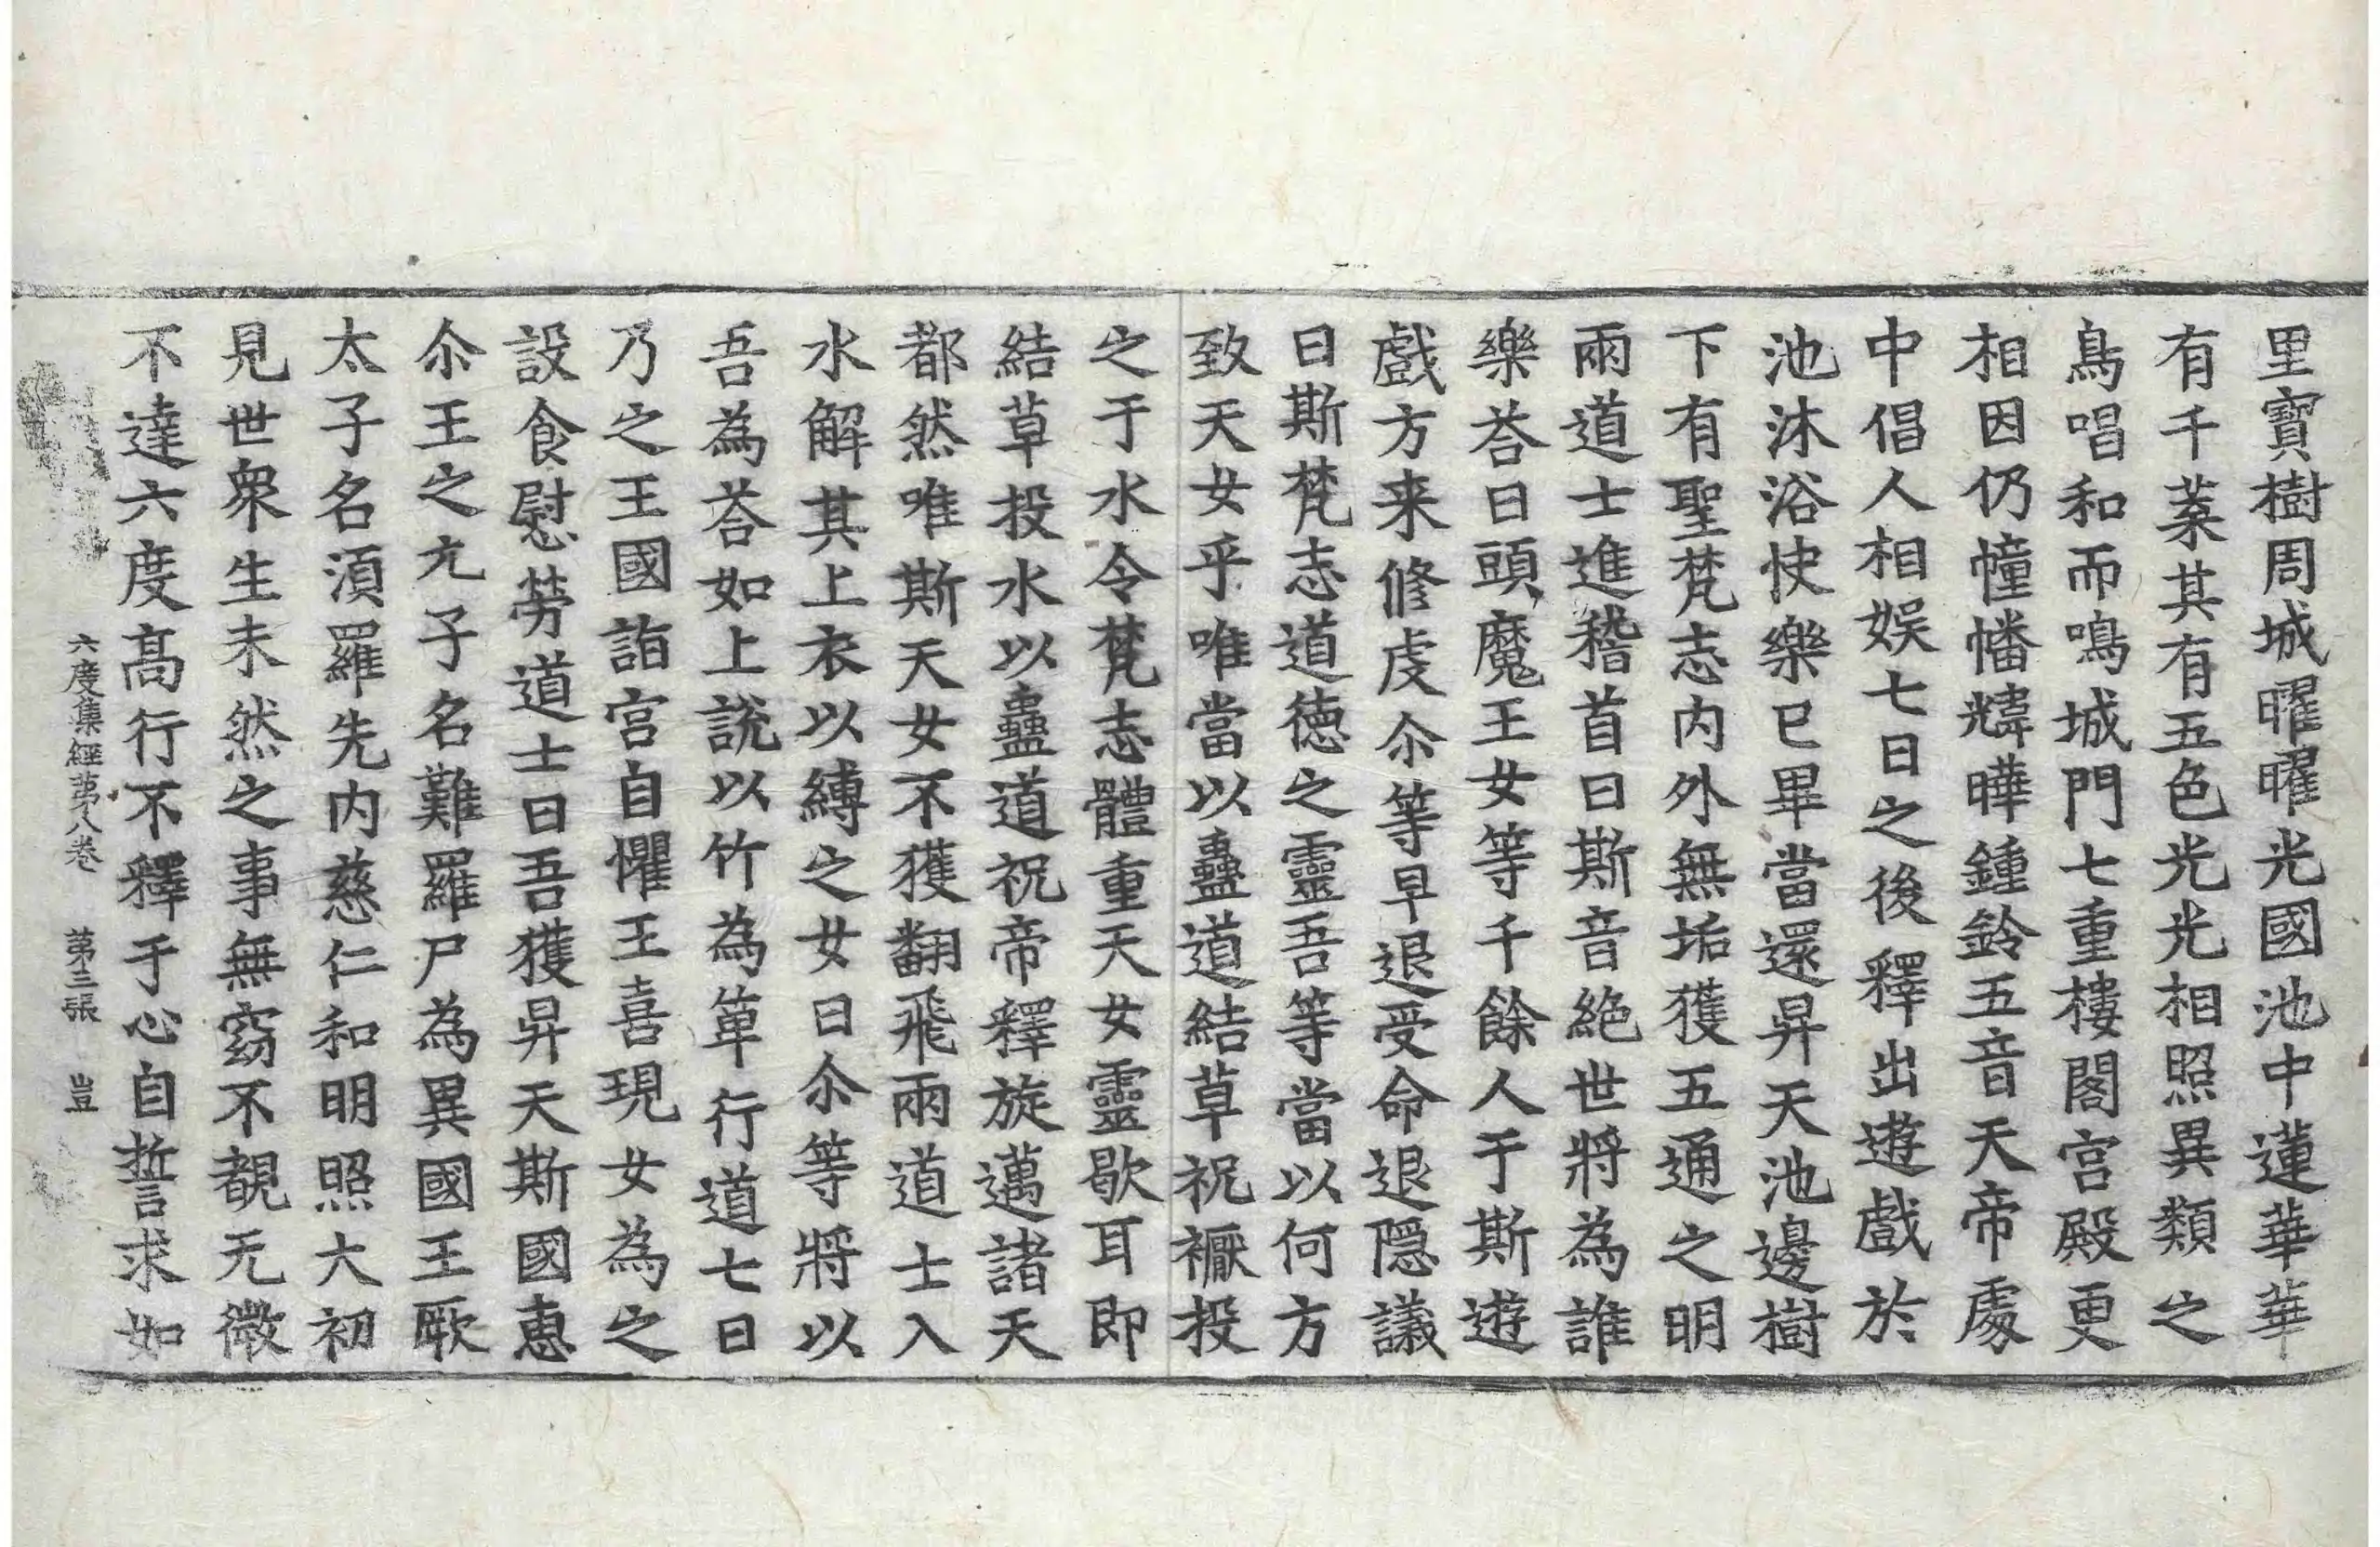 里寶樹周城曜曜光國池中蓮華華
有千葉其有五色光光相照異類之
鳥唱和而鳴城門七重樓閣宮殿更
相因仍幢幡煒曄鍾鈴五音天帝處
中倡人相娛七日之後釋出遊戲於
池沐浴快樂已畢當還昇天池邊樹
下有聖梵志內外無垢獲五通之明
兩道士進稽首曰斯音絕世將為誰
樂荅曰頭魔王女等千餘人于斯遊
戲方来修虔尒等早退受命退隱議
曰斯梵志道德之靈吾等當以何方
致天女乎唯當以蠱道結草祝禰投
之于水令梵志體重天女靈歇耳即
結草投水以蠱道祝帝釋旋邁諸天
都然唯斯天女不獲翻飛兩道士入
水解其上衣以縛之女曰尒等將以
吾為荅如上說以竹為箄行道七日
乃之王國詣宮自懼王喜現女為之
設食慰勞道士曰吾獲昇天斯國惠
尒王之元子名難羅尸為異國王厥
太子名湏羅先內慈仁和明照大初
見世衆生未然之事無窈不覩无微
不達六度高行不釋于心自誓求如
六度集經苐八卷 苐三張 豈